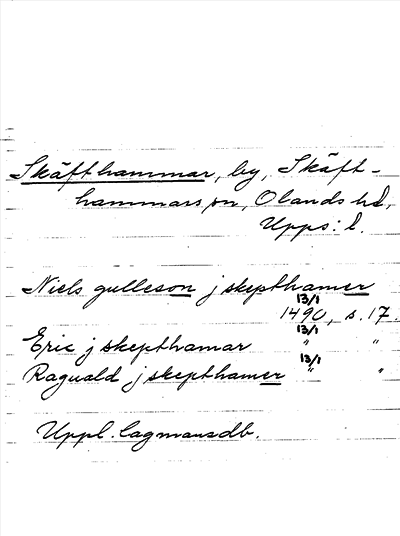 Skäfthammar, by, Skäft-
hammars sn, Olands hd,
Upps: l.
Niels gulleson j skepthamer
13/1
1490, s. 17.
13/1
Eric j skepthamar " "
13/1
Raguald j skepthamer " "
Uppl. lagmansdb.